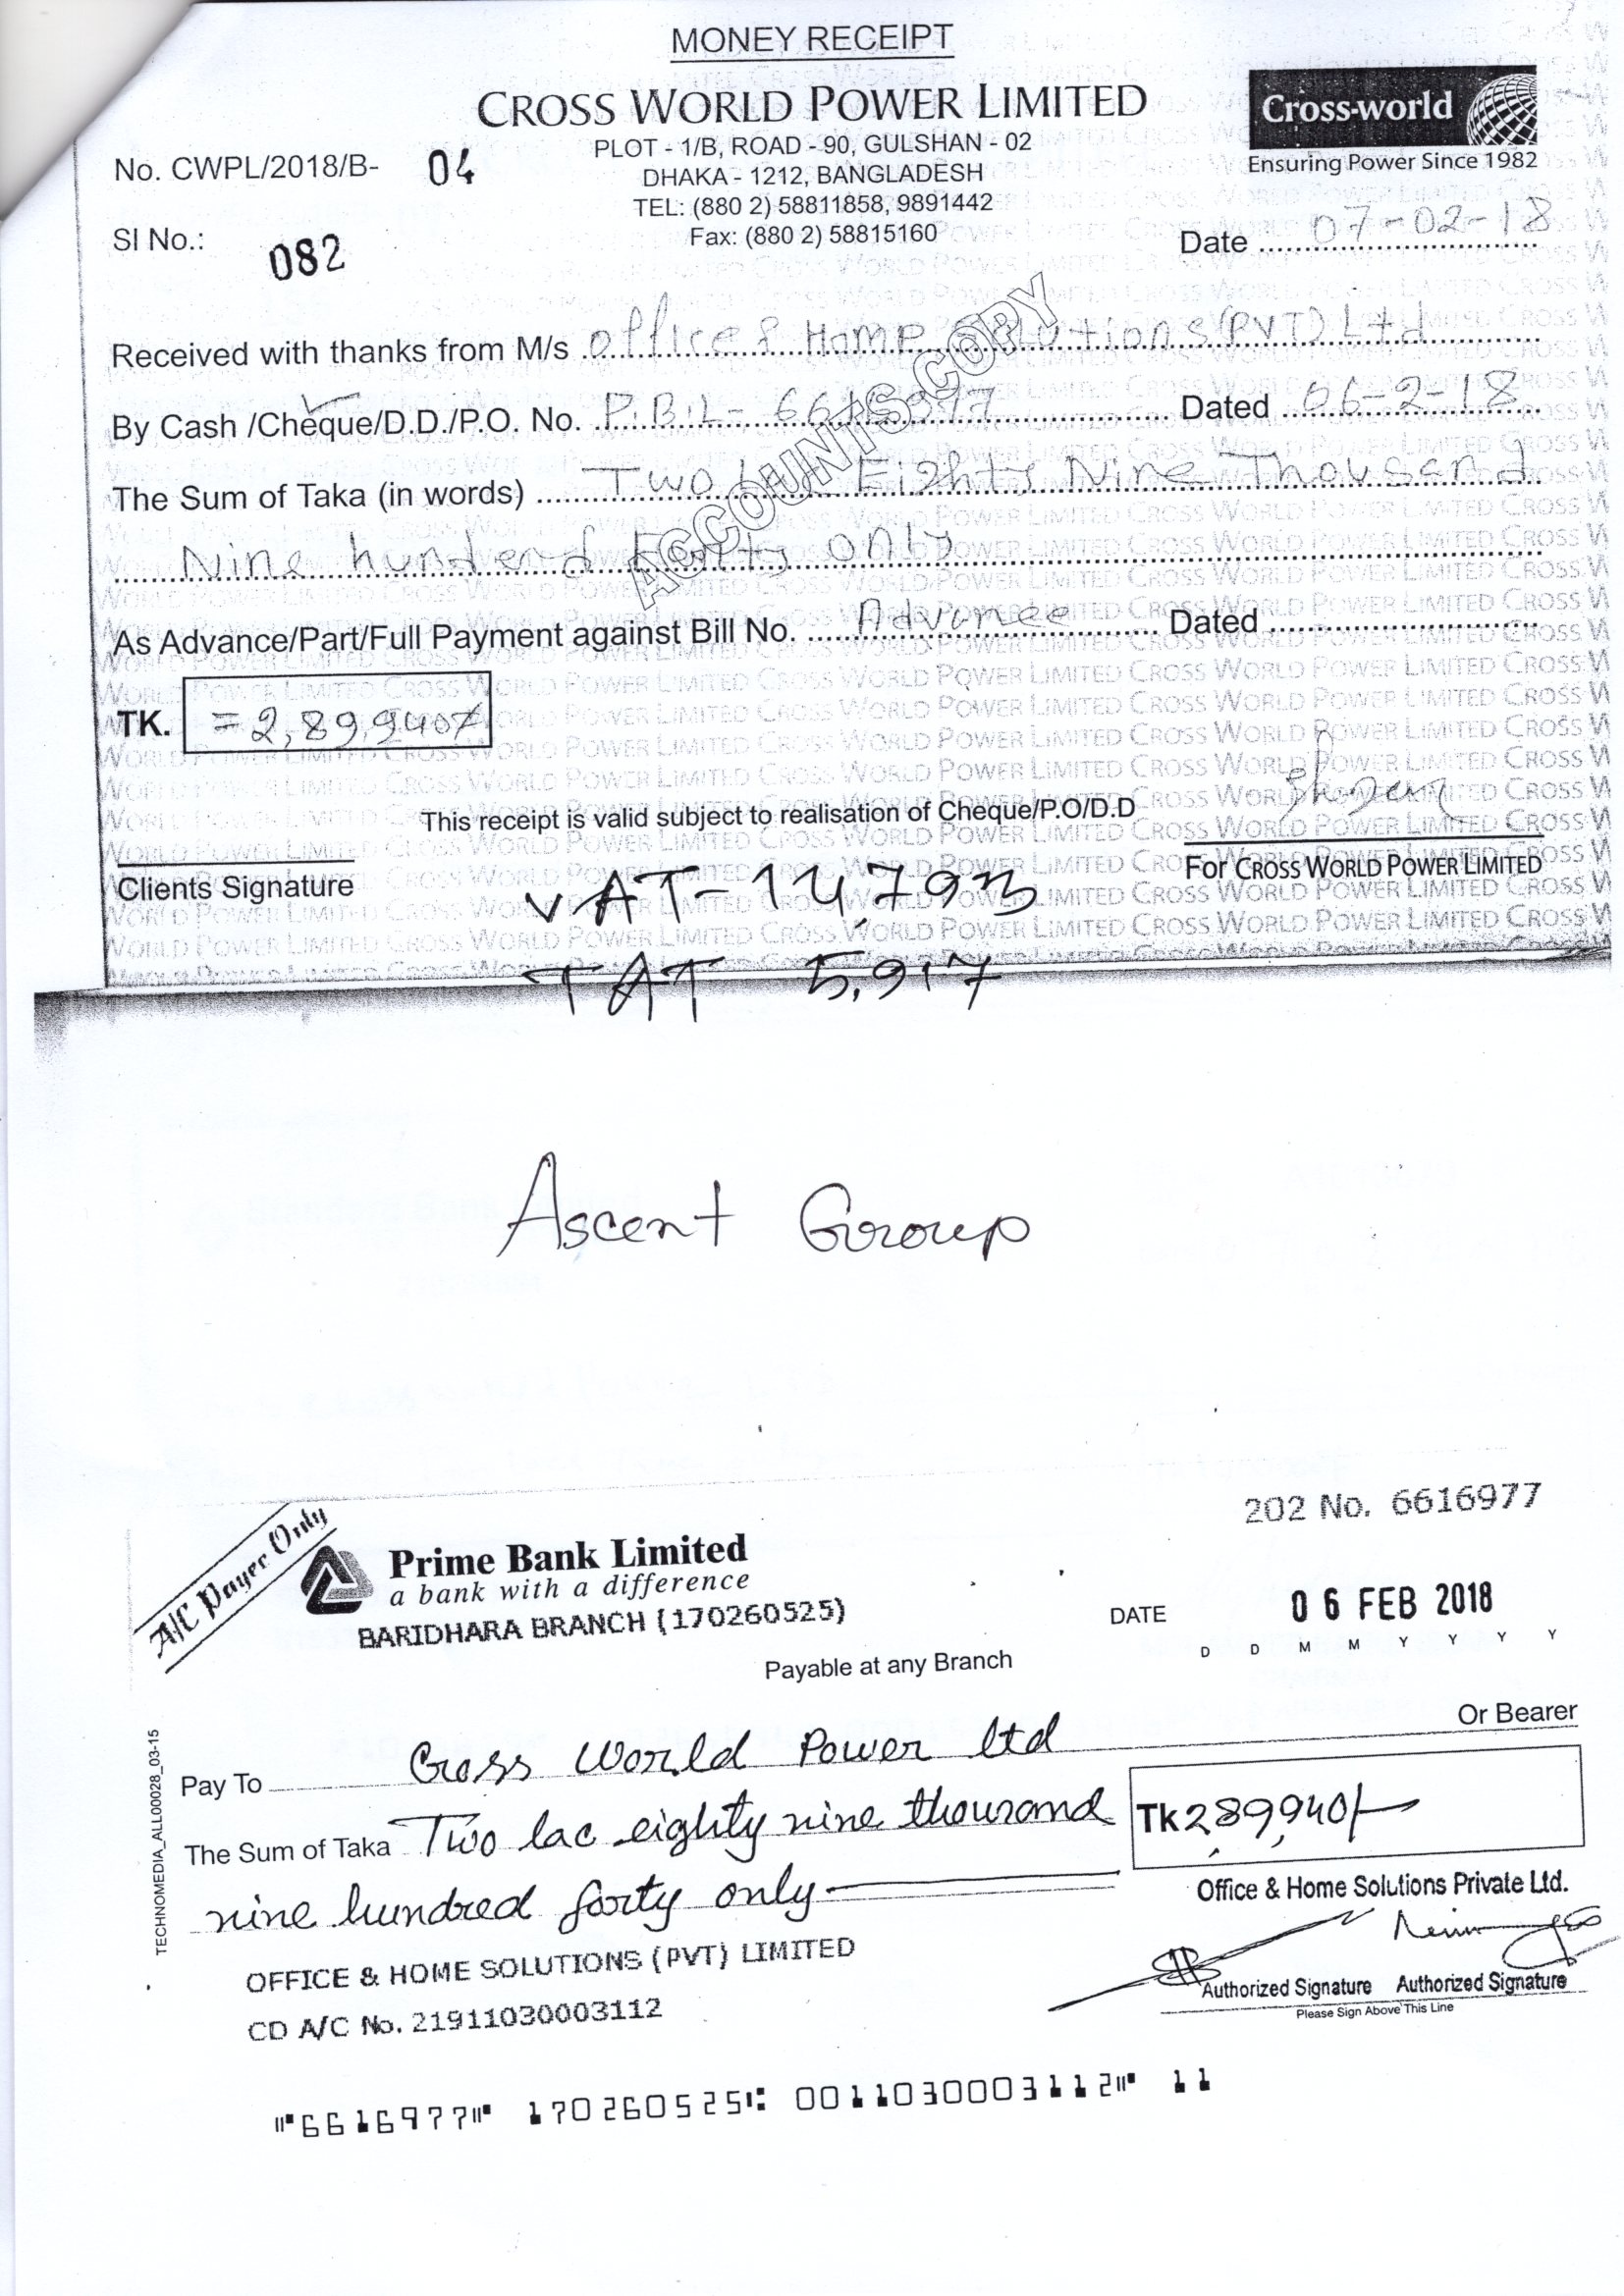 MONEY RECEIPT
CROSS WORLD POWER LIMITED
Cross-world
Ensuring Power Since 1982
PLOT - 1/B, ROAD - 90, GULSHAN - 02
No. CWPL/2018/B- 04
DHAKA - 1212, BANGLADESH
TEL: (880 2) 58811858, 9891442
SI No.: 082
Fax: (880 2) 58815160
Date 07-02-18
Received with thanks from M/s office & Home Solutions (PVT) Ltd
By Cash /Cheque/D.D./P.O. No. P.B.L- Dated 06-2-18
The Sum of Taka (in words) Two Eighty Nine Thousand
Nine hunderd forty only
ACCOUNTS COPY
As Advance/Part/Full Payment against Bill No. Advance Dated
TK. =2,89,940/
This receipt is valid subject to realisation of Cheque/P.O/D.D
Clients Signature
For CROSS WORLD POWER LIMITED
VAT-14,793
5,917
Ascent Group
202 No. 6616977
A/C Payee Only
Prime Bank Limited
a bank with a difference
BARIDHARA BRANCH (170260525)
DATE 06 FEB 2018
D D M M Y Y Y Y
Payable at any Branch
Pay To Cross World Power ltd Or Bearer
The Sum of Taka Two lac eighty nine thousand
Tk 289,940/-
nine hundred forty only
Office & Home Solutions Private Ltd.
OFFICE & HOME SOLUTIONS (PVT) LIMITED
Authorized Signature Authorized Signature
Please Sign Above This Line
CD A/C No. 21911030003112
TECHNOMEDIA_ALL00028_03-15
⑈6616977⑈ 170260525⑆ 0011030003112⑈ 11